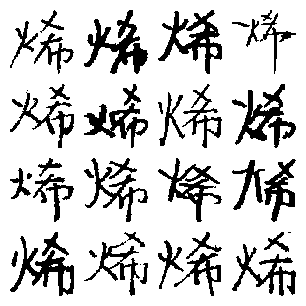 烯烯烯烯
烯烯烯烯
烯烯烯烯
烯烯烯烯